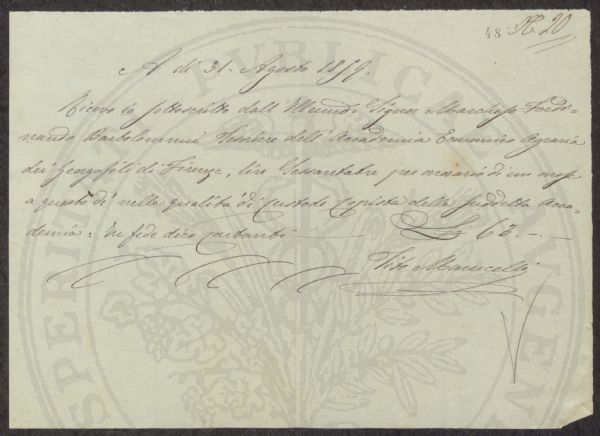 48 N. 20
A dì 31. Agosto 1859.
Ricevo io sottoscritto dall' Illmo Sigre Marchese Ferdi-
nando Bartolommei Tesoriere dell' Accademia Economico Agraria
dei Georgofili di Firenze, lire Sessantatre per onorario di un mese
a questo dì nella qualità di Custode, Copista della suddetta Acca-
demia; In fede dico contanti — £ 63.-.-
Tito Marucelli
PUBLICAE
PROSPERITATI
AUGENDAE